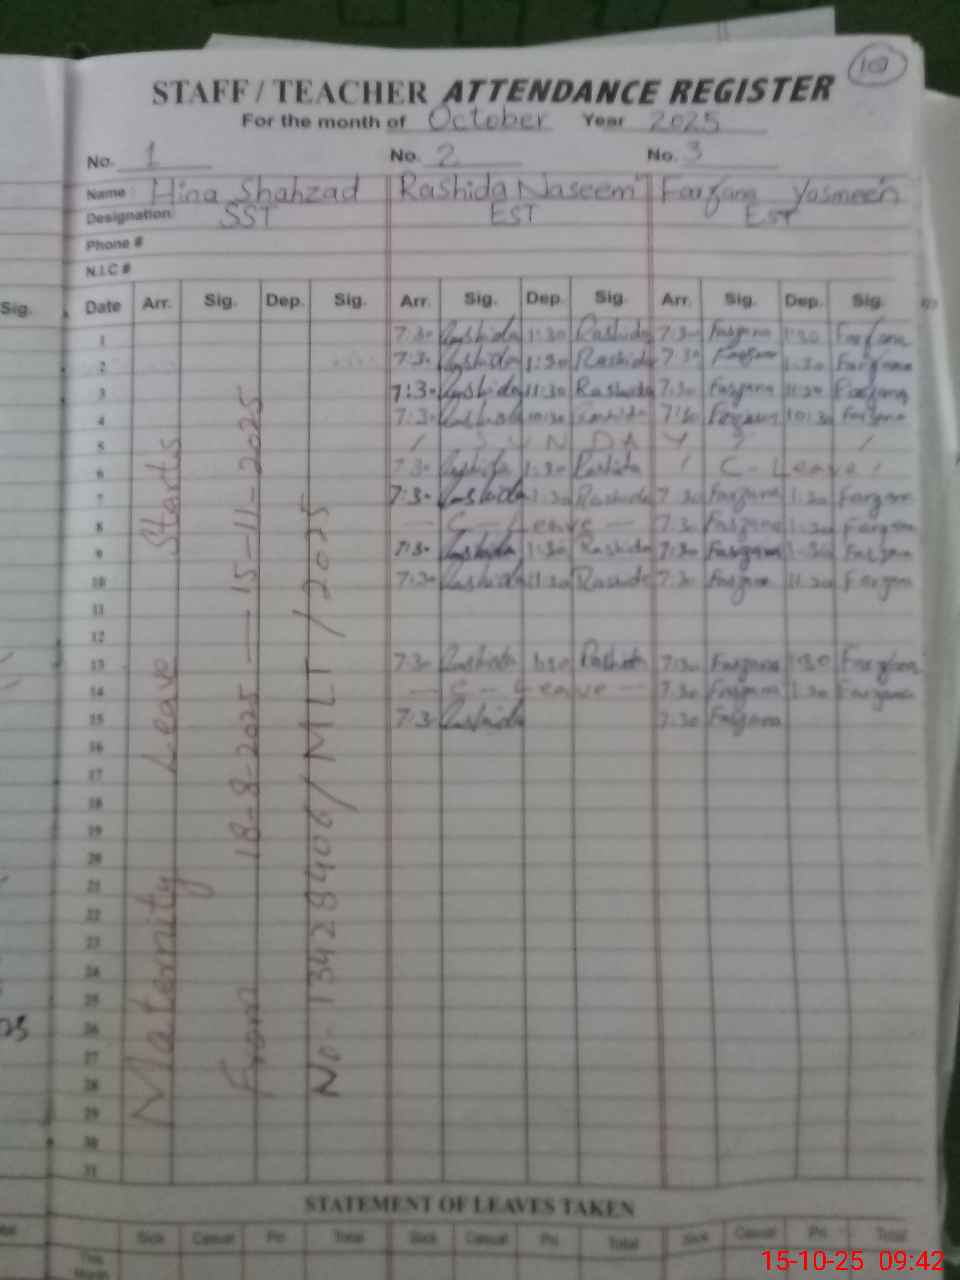 107
STAFF / TEACHER ATTENDANCE REGISTER
For the month of October Year 2025
No. 1 No. 2 No. 3
Name : Hina Shahzad Rashida Naseem Farzana Yasmeen
Designation: SST EST EST
Phone #
N.I.C #
Sig. Date Arr. Sig. Dep. Sig. Arr. Sig. Dep. Sig. Arr. Sig. Dep. Sig.
1 7:30 Rashida 1:30 Rashida 7:30 Farzana 1:30 Farzana
2 7:30 Rashida 1:30 Rashida 7:30 Farzana 1:30 Farzana
3 7:30 Rashida 11:30 Rashida 7:30 Farzana 11:30 Farzana
4 7:30 Rashida 10:30 Rashida 7:30 Farzana 10:30 Farzana
5 / S U N D A Y S /
6 7:30 Rashida 1:30 Rashida / C - Leave /
7 7:30 Rashida 1:30 Rashida 7:30 Farzana 1:30 Farzana
8 — C - Leave — 7:30 Farzana 1:30 Farzana
9 7:30 Rashida 1:30 Rashida 7:30 Farzana 1:30 Farzana
10 7:30 Rashida 11:30 Rashida 7:30 Farzana 11:30 Farzana
11
12
13 7:30 Rashida 1:30 Rashida 7:30 Farzana 1:30 Farzana
14 — C - Leave — 7:30 Farzana 1:30 Farzana
15 7:30 Rashida 7:30 Farzana
16
17
18
19
20
21
22
23
24
25
26
27
28
29
30
31
Maternity Leave Starts
From 18-8-2025 — 15-11-2025
No. 13428406/MLT/2025
STATEMENT OF LEAVES TAKEN
Sick Casual Pri Total Sick Casual Pri Total Sick Casual Pri Total
This
Month
15-10-25 09:42